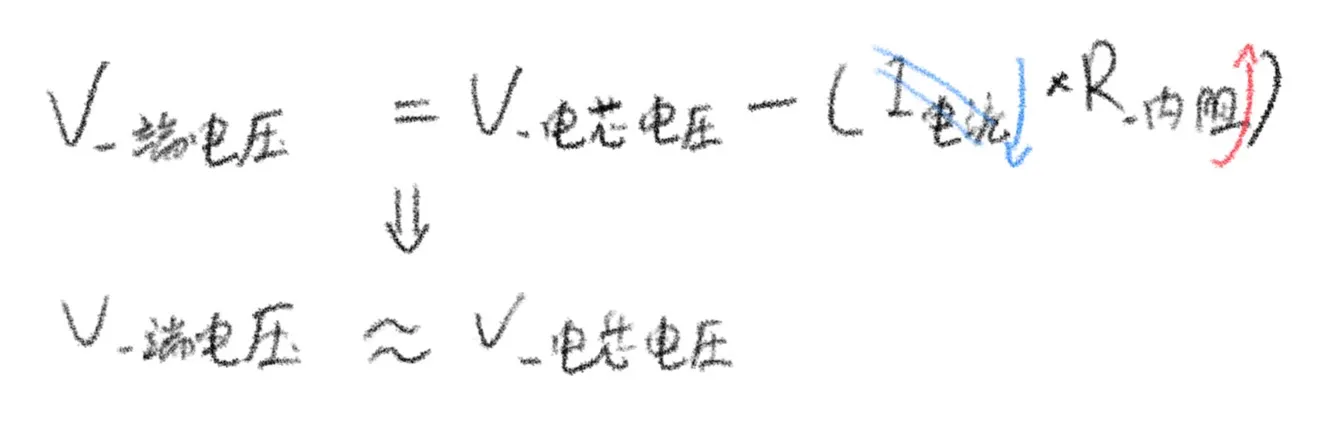 V_端电压 = V_电芯电压 - (I电流 * R_内阻)
⇓
V_端电压 ≈ V_电芯电压